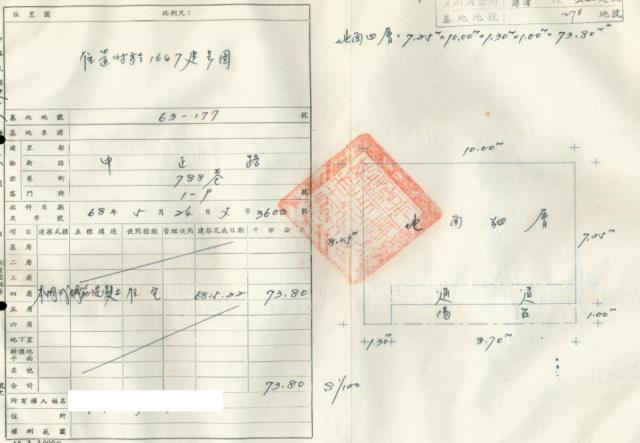 位置圖 比例尺：
位置附於1647建号圖
基地地號 63-177 號
基地來源
建 里 鄰
物 街 路 中正路
坐 巷 衖 788巷
落 門 牌 1-9 號
收件日期及字號 68年5月26日 字3600號
項目 建築式樣 主體構造 使用種類 建築完成日期 平方公尺
基層
二層
三層
四層 本國式 鋼筋混凝土 住宅 68.5.22 73.80
五層
六層
地下室
騎樓地平面
其他
合計 73.80
所有權人姓名
住所
權利範圍
基地地號 278 地號
地面四層=7.25×10.00+1.30×1.00=73.80
10.00
地面四層
8.25
7.25
通道
陽台
1.00
1.30 8.70
S:1/100